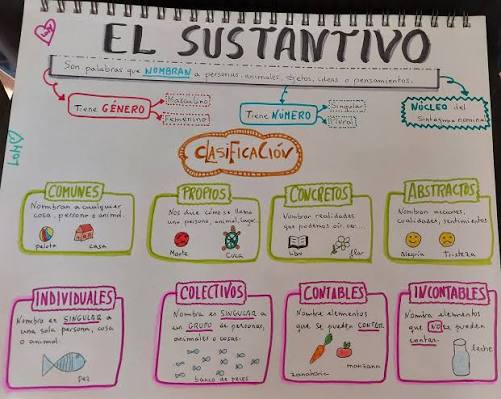 EL SUSTANTIVO
Son palabras que NOMBRAN a personas, animales, objetos, ideas o pensamientos.
Tiene GÉNERO
Masculino
Femenino
Tiene NÚMERO
Singular
Plural
NÚCLEO del
Sintagma nominal
CLASIFICACIÓN
COMUNES
Nombran a cualquier
cosa, persona o animal.
pelota
casa
PROPIOS
Nos dice cómo se llama
una persona, animal, lugar...
Marte
Cuca
CONCRETOS
Nombran realidades
que podemos oír, ver...
libro
flor
ABSTRACTOS
Nombran acciones,
cualidades, sentimientos
alegría
tristeza
INDIVIDUALES
Nombra en SINGULAR a
una sola persona, cosa
o animal.
pez
COLECTIVOS
Nombra en SINGULAR a
un GRUPO de personas,
animales o cosas.
banco de peces
CONTABLES
Nombra elementos
que se pueden CONTAR.
zanahoria
manzana
INCONTABLES
Nombra elementos
que NO se pueden
contar.
leche